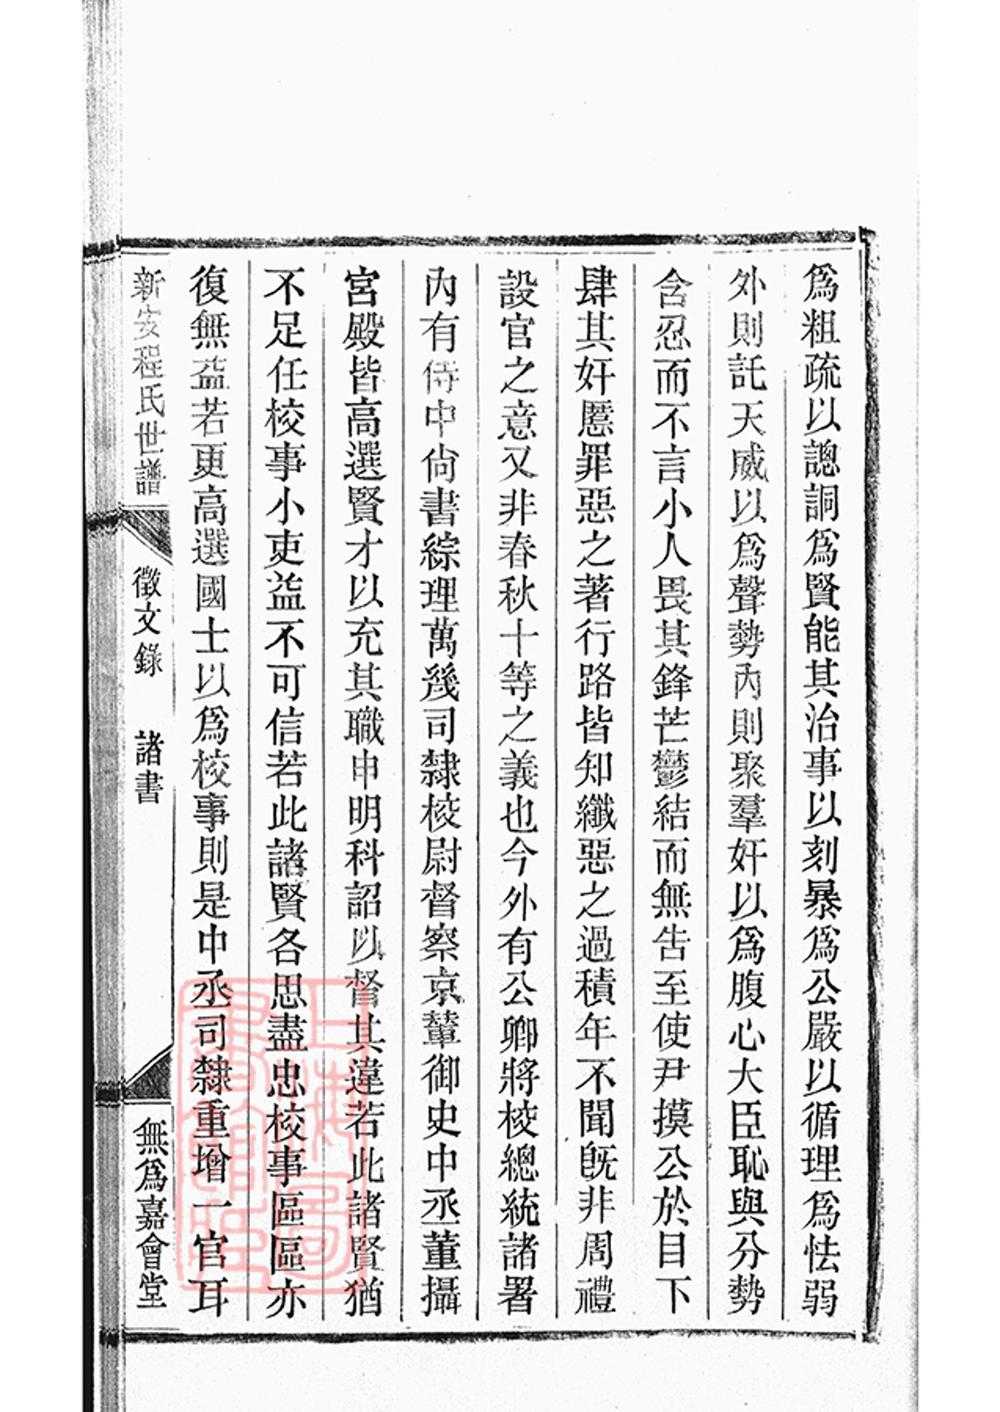 爲粗疏以謥詷爲賢能其治事以刻暴爲公嚴以循理爲怯弱
外則託天威以爲聲勢內則聚羣奸以爲腹心大臣恥與分勢
含忍而不言小人畏其鋒芒鬱結而無告至使尹摸公於目下
肆其奸慝罪惡之著行路皆知纖惡之過積年不聞旣非周禮
設官之意又非春秋十等之義也今外有公卿將校總統諸署
內有侍中尙書綜理萬幾司隸校尉督察京輦御史中丞董攝
宮殿皆高選賢才以充其職申明科詔以督其違若此諸賢猶
不足任校事小吏益不可信若此諸賢各思盡忠校事區區亦
復無益若更高選國士以爲校事則是中丞司隸重增一官耳
新安程氏世譜 徵文錄 諸書 無爲嘉會堂